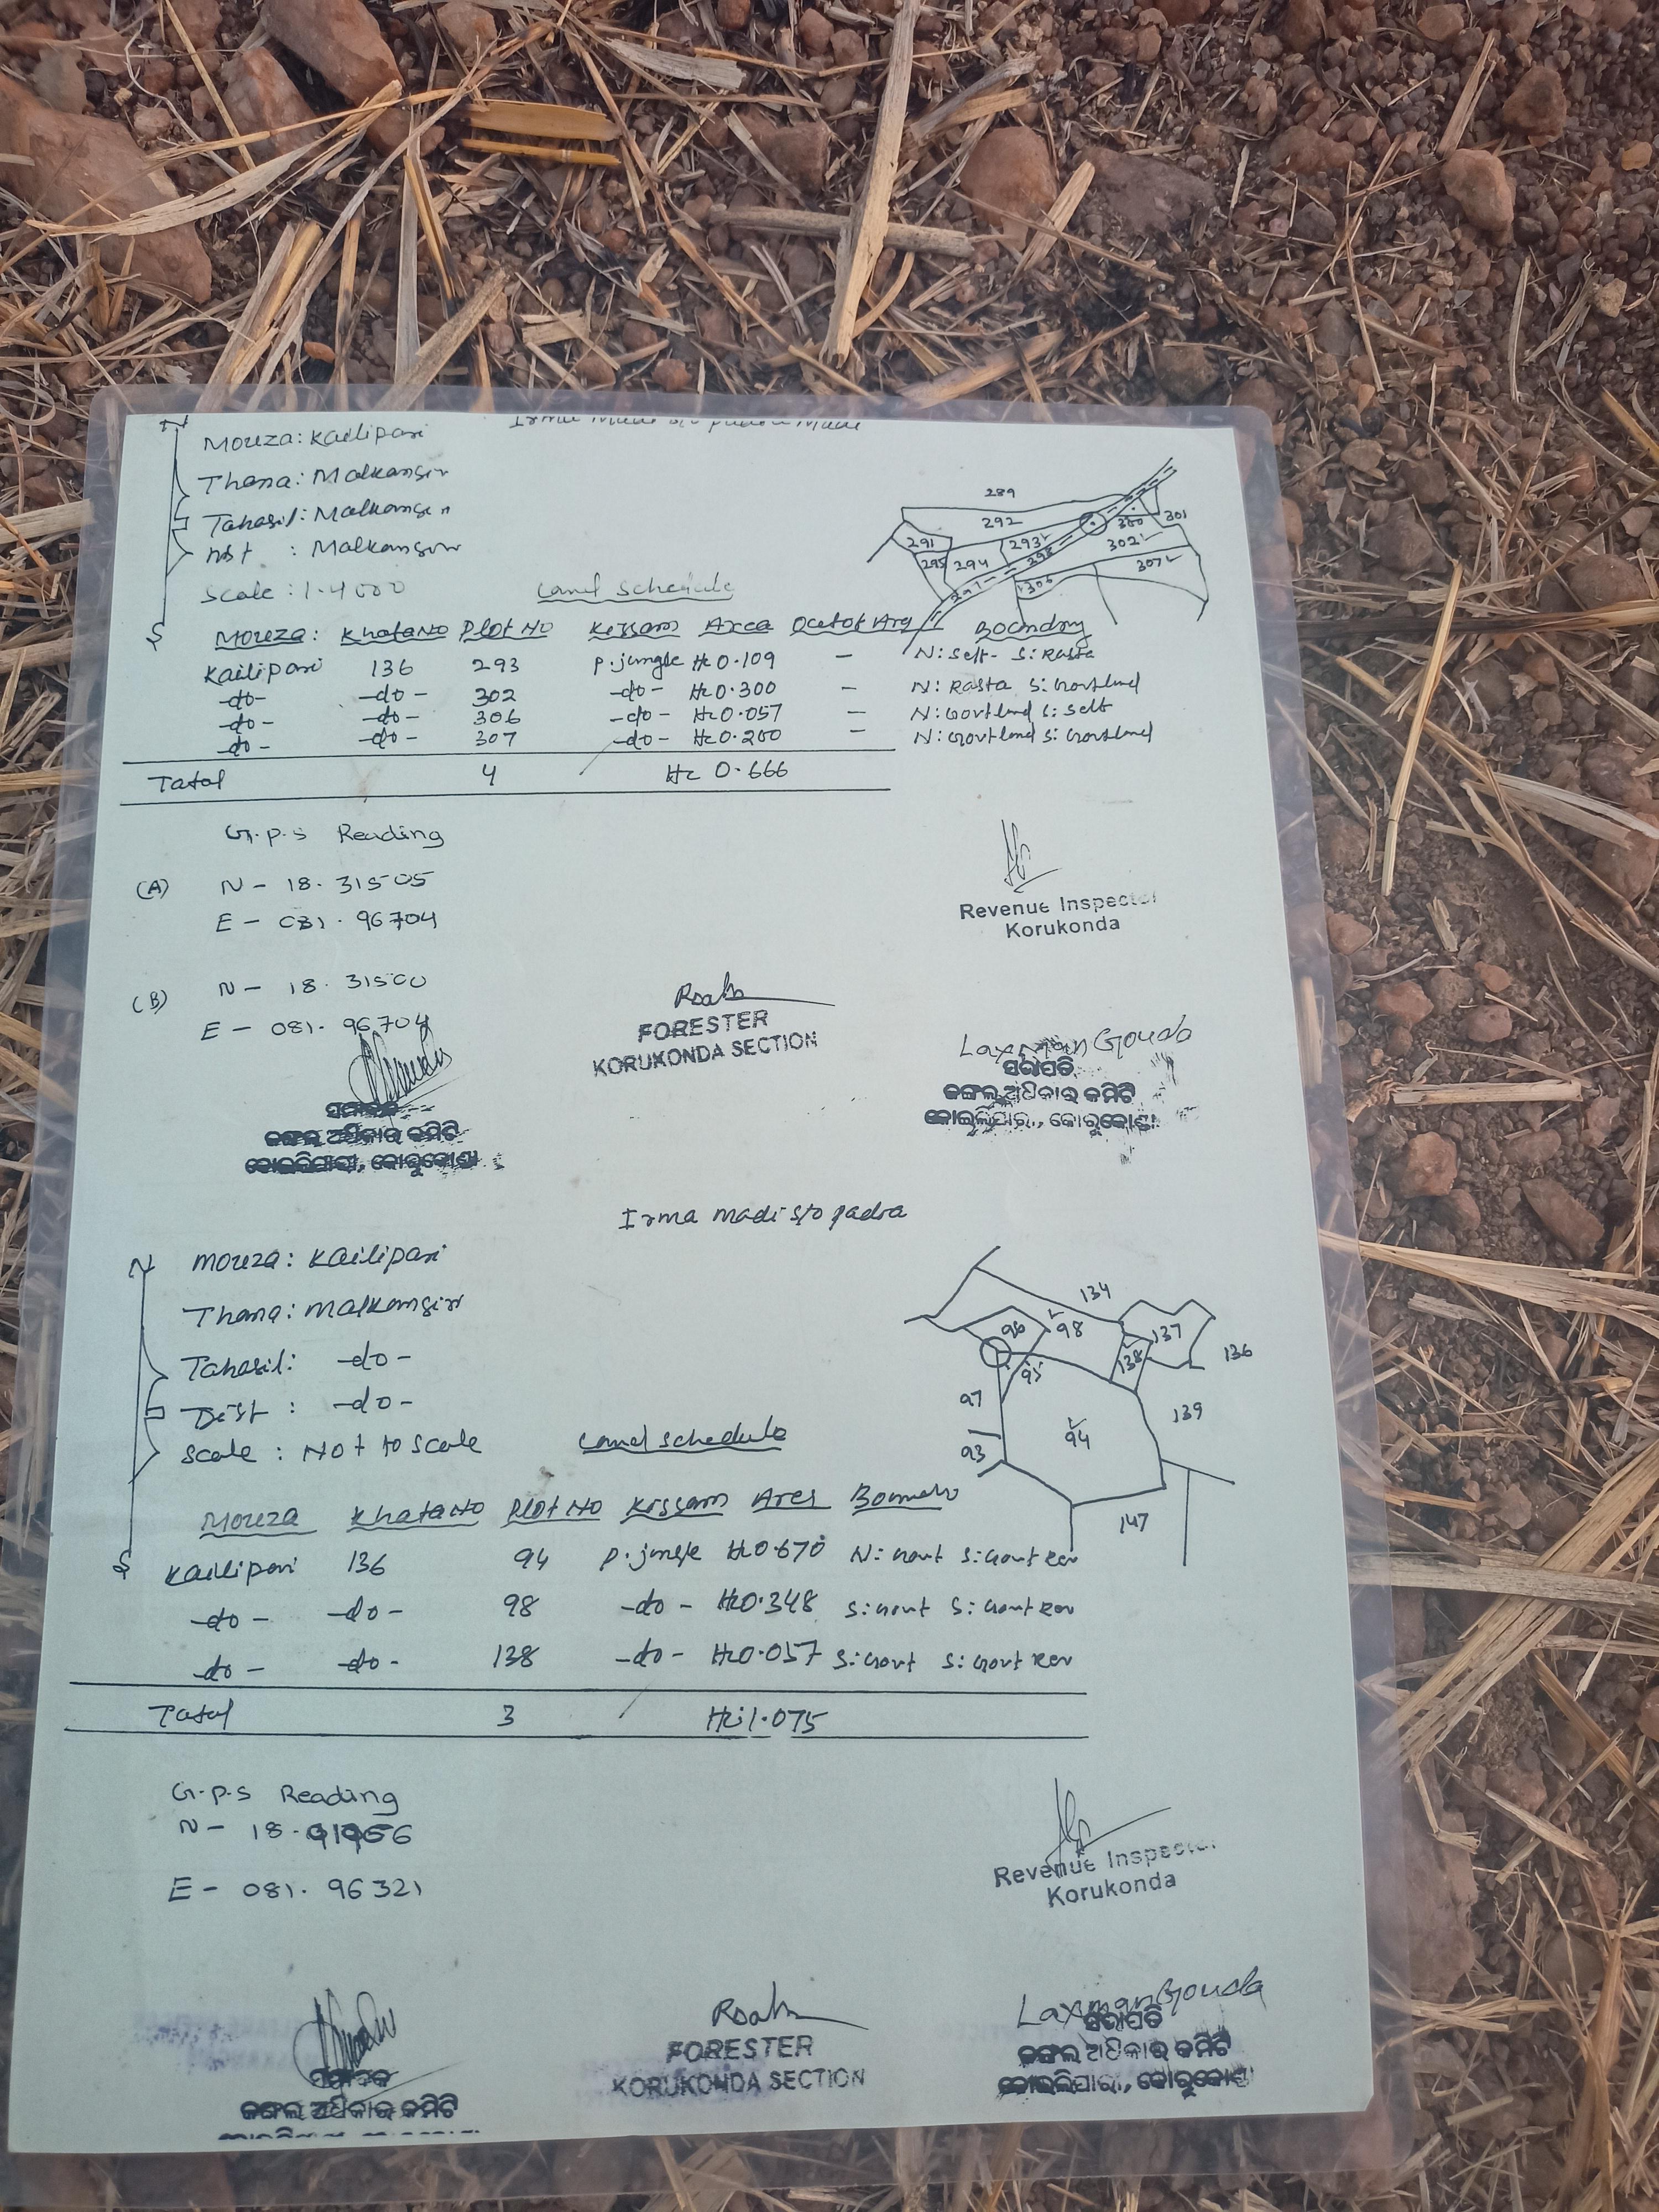 Irma Madi S/o padra Madi
N
Mouza: Kailipari
Thana: Malkangiri
Tahasil: Malkangiri
Dist : Malkangiri
Scale : 1.4000
S
289
292
291
293
300
301
295
294
298
302
307
306
297
Land Schedule
Mouza: Khata No Plot No Kissam Area Out of Area Boundry
Kailipari 136 293 P. jungle Hc 0.109 - N: Self- S: Rasta
-do- -do- 302 -do- Hc 0.300 - N: Rasta S: Govt land
-do- -do- 306 -do- Hc 0.057 - N: Govt land S: Self
-do- -do- 307 -do- Hc 0.200 - N: Govt land S: Govt land
Total 4 Hc 0.666
G.p.s Reading
(A) N - 18. 31505
E - 081. 96704
(B) N - 18. 31500
E - 081. 96704
Revenue Inspector
Korukonda
FORESTER
KORUKONDA SECTION
Laxman Gouda
ସଭାପତି
ଜଙ୍ଗଲ ଅଧିକାର କମିଟି
କୋଇଲିପାରୀ, କୋରୁକୋଣ୍ଡା
ସମ୍ପାଦକ
ଜଙ୍ଗଲ ଅଧିକାର କମିଟି
କୋଇଲିପାରୀ, କୋରୁକୋଣ୍ଡା
Irma madi S/o padra
N
Mouza: Kailipari
Thana: Malkangiri
Tahasil: -do-
Dist : -do-
Scale : Not to Scale
S
134
96
98
137
138
136
95
97
139
94
93
147
Land schedule
Mouza Khata No Plot No Kissam Area
Kailipari 136 94 P. jungle Hc 0.670 N: Govt S: Govt Rev
-do- -do- 98 -do- Hc 0.348 S: Govt S: Govt Rev
-do- -do- 138 -do- Hc 0.057 S: Govt S: Govt Rev
Total 3 Hc 1.075
G.p.s Reading
N - 18.
E - 081. 96321
Revenue Inspector
Korukonda
FORESTER
KORUKONDA SECTION
Laxman Gouda
ସଭାପତି
ଜଙ୍ଗଲ ଅଧିକାର କମିଟି
କୋଇଲିପାରୀ, କୋରୁକୋଣ୍ଡା
ସମ୍ପାଦକ
ଜଙ୍ଗଲ ଅଧିକାର କମିଟି